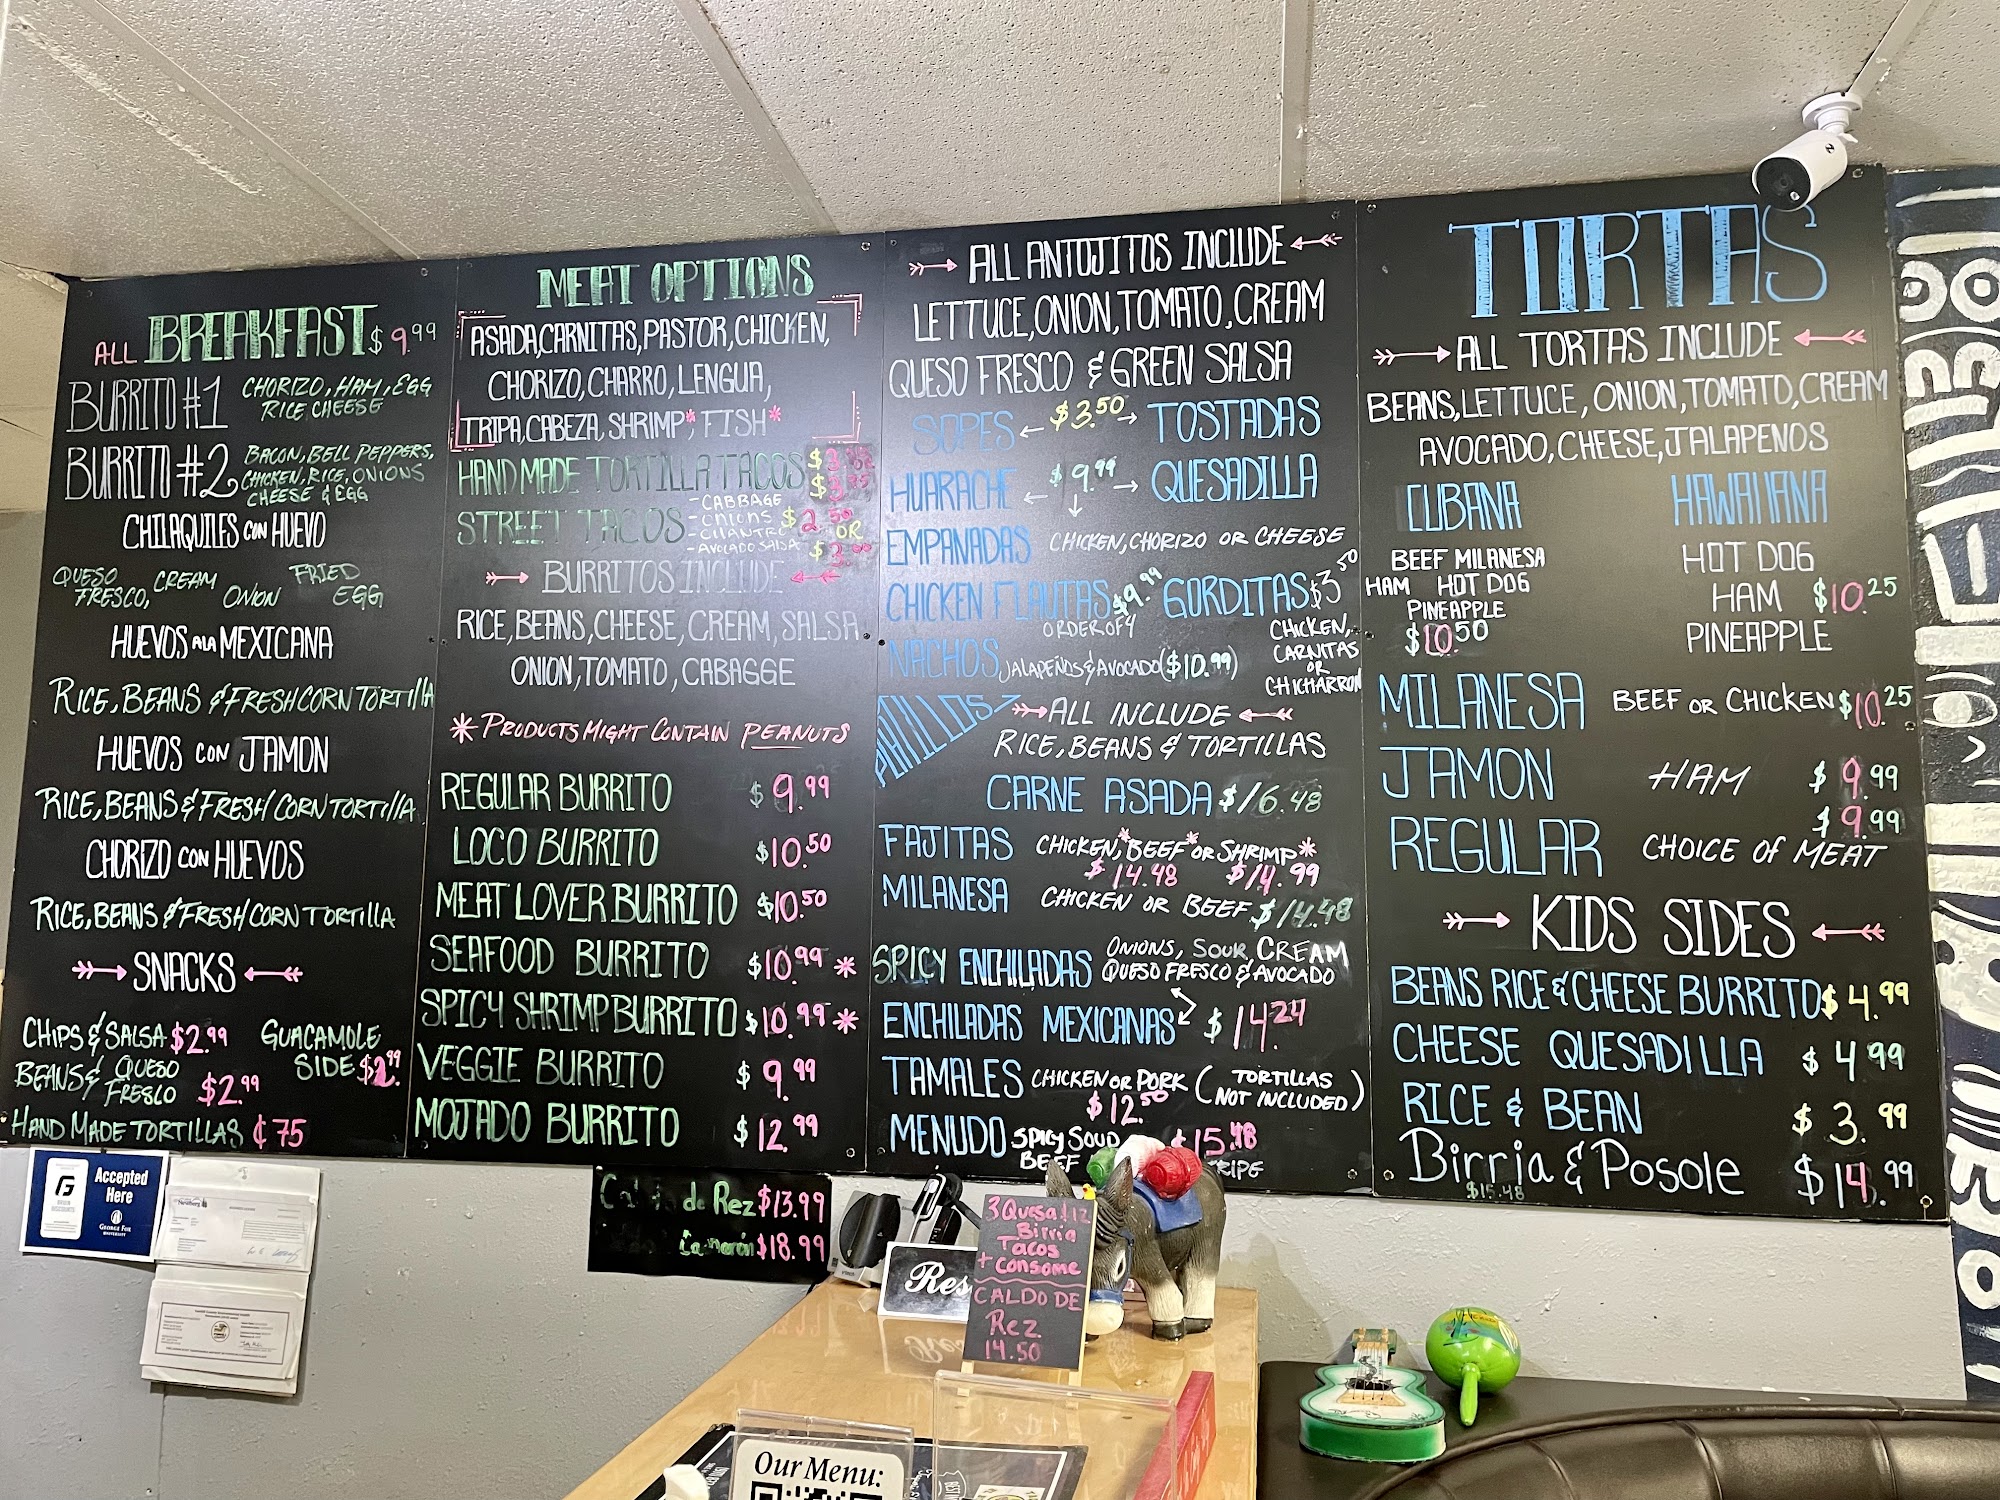 ALL BREAKFAST $9.99
BURRITO #1 CHORIZO, HAM, EGG
RICE CHEESE
BURRITO #2 BACON, BELL PEPPERS,
CHICKEN, RICE, ONIONS
CHEESE & EGG
CHILAQUILES CON HUEVO
QUESO FRESCO, CREAM ONION FRIED EGG
HUEVOS A LA MEXICANA
RICE, BEANS & FRESH CORN TORTILLA
HUEVOS CON JAMON
RICE, BEANS & FRESH CORN TORTILLA
CHORIZO CON HUEVOS
RICE, BEANS & FRESH CORN TORTILLA
SNACKS
CHIPS & SALSA $2.99 GUACAMOLE
SIDE $2.99
BEANS & QUESO
FRESCO $2.99
HAND MADE TORTILLAS ¢75
MEAT OPTIONS
ASADA, CARNITAS, PASTOR, CHICKEN,
CHORIZO, CHARRO, LENGUA,
TRIPA, CABEZA, SHRIMP*, FISH*
HAND MADE TORTILLA TACOS
STREET TACOS
- CABBAGE
- ONIONS $2.50
- CILANTRO OR
- AVOCADO SALSA
BURRITOS INCLUDE
RICE, BEANS, CHEESE, CREAM, SALSA
ONION, TOMATO, CABAGGE
* PRODUCTS MIGHT CONTAIN PEANUTS
REGULAR BURRITO $9.99
LOCO BURRITO $10.50
MEAT LOVER BURRITO $10.50
SEAFOOD BURRITO $10.99 *
SPICY SHRIMP BURRITO $10.99 *
VEGGIE BURRITO $9.99
MOJADO BURRITO $12.99
ALL ANTOJITOS INCLUDE
LETTUCE, ONION, TOMATO, CREAM
QUESO FRESCO & GREEN SALSA
SOPES $3.50 TOSTADAS
HUARACHE $9.99 QUESADILLA
EMPANADAS CHICKEN, CHORIZO OR CHEESE
CHICKEN FLAUTAS $9.99 GORDITAS $3.50
ORDER OF 4
CHICKEN,
CARNITAS
OR
CHICHARRON
NACHOS JALAPEÑOS & AVOCADO ($10.99)
PLATILLOS
ALL INCLUDE
RICE, BEANS & TORTILLAS
CARNE ASADA $16.48
FAJITAS CHICKEN,* BEEF* OR SHRIMP*
$14.48 $14.99
MILANESA CHICKEN OR BEEF $14.48
SPICY ENCHILADAS ONIONS, SOUR CREAM
QUESO FRESCO & AVOCADO
ENCHILADAS MEXICANAS $14.24
TAMALES CHICKEN OR PORK (TORTILLAS
NOT INCLUDED)
$12.50
MENUDO SPICY SOUP $15.48
BEEF
TORTAS
ALL TORTAS INCLUDE
BEANS, LETTUCE, ONION, TOMATO, CREAM
AVOCADO, CHEESE, JALAPENOS
CUBANA
BEEF MILANESA
HAM HOT DOG
PINEAPPLE
$10.50
HAWAIIANA
HOT DOG
HAM $10.25
PINEAPPLE
MILANESA BEEF OR CHICKEN $10.25
JAMON HAM $9.99
REGULAR CHOICE OF MEAT $9.99
KIDS SIDES
BEANS RICE & CHEESE BURRITO $4.99
CHEESE QUESADILLA $4.99
RICE & BEAN $3.99
Birria & Posole $14.99
$15.48
de Rez $13.99
Camarón $18.99
Accepted
Here
GEORGE FOX
UNIVERSITY
Res
3 Quesa
Birria
Tacos
+ Consome
CALDO DE
Rez
14.50
Our Menu: